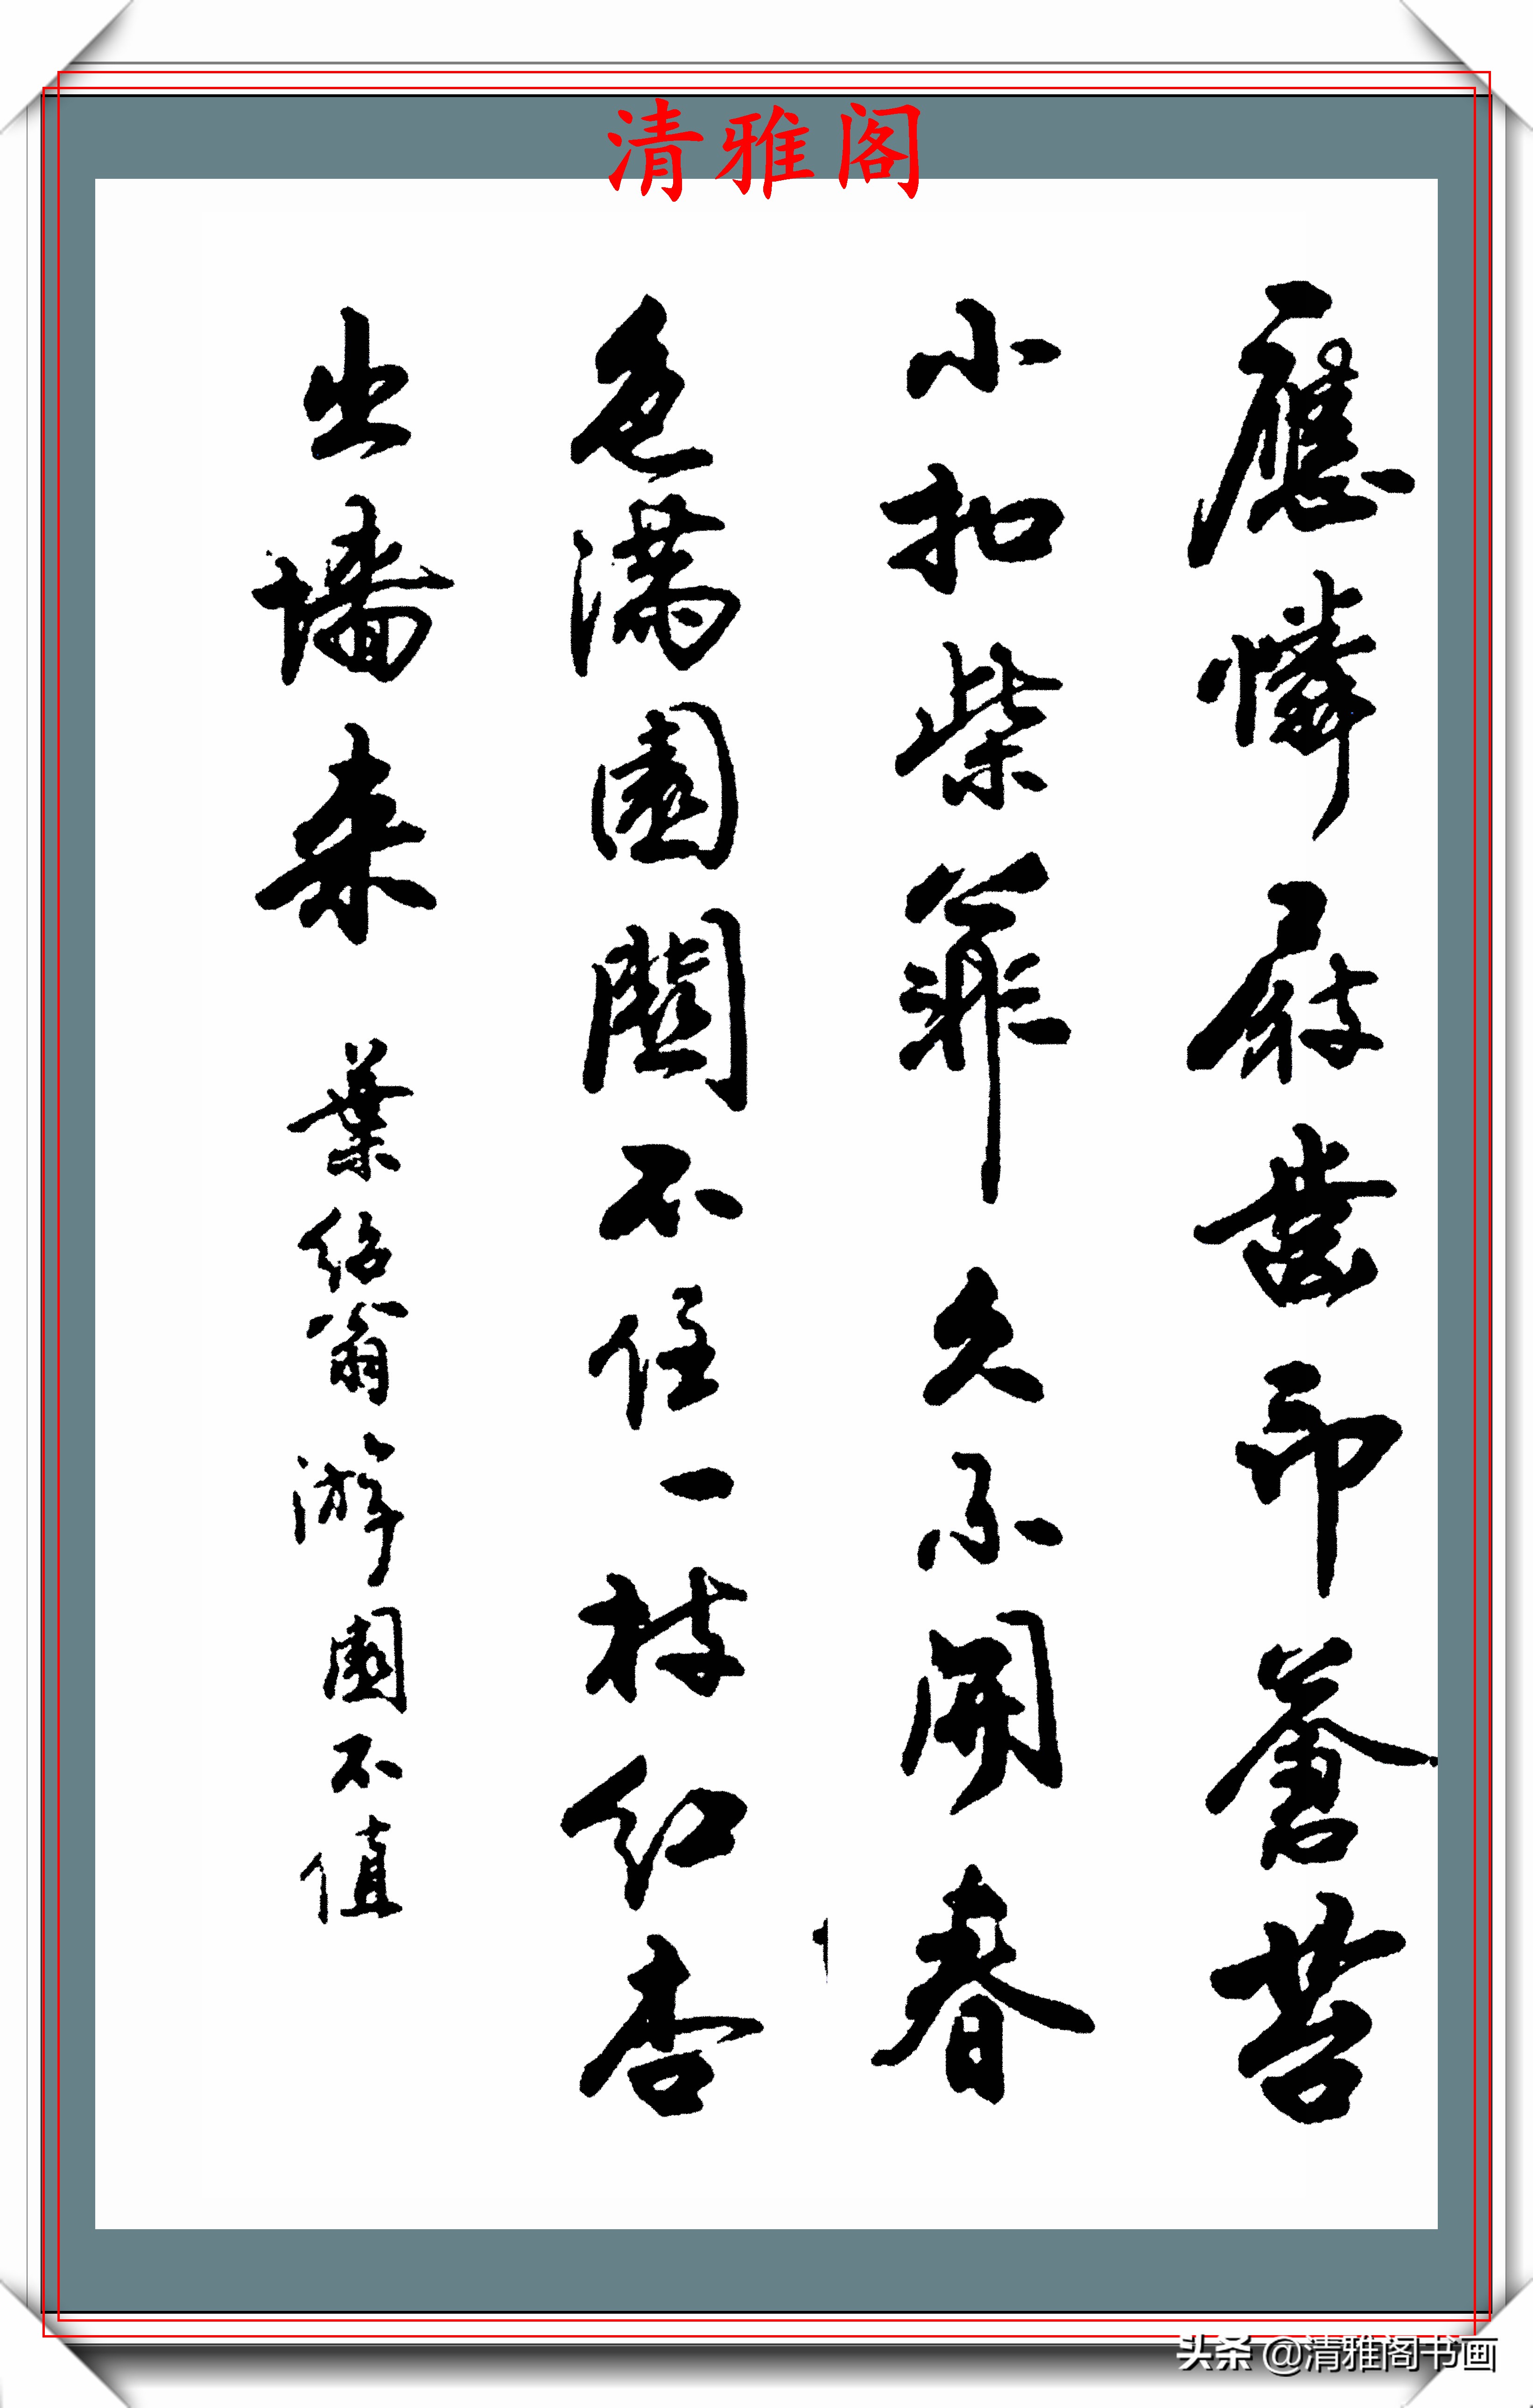 清雅阁
應憐屐齒印蒼苔
小扣柴扉久不開春
色满園關不住一枝红杏
出墙来 葉绍翁游園不值
头条 @清雅阁书画